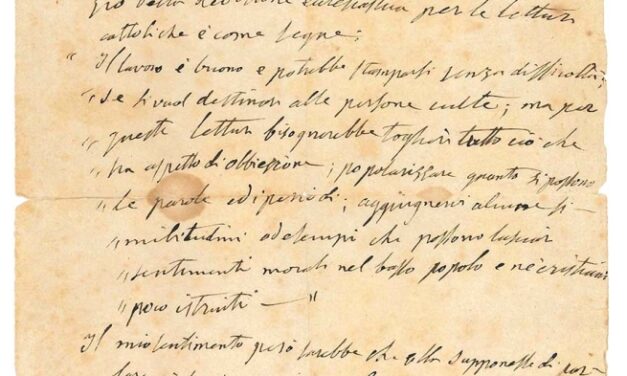 della revisione ecclesiastica per le letture
cattoliche è come segue;
"Il lavoro è buono e potrebbe stamparsi senza difficoltà;
"se si vuol destinar alle persone culte; ma per
"queste letture bisognerebbe togliere tutto ciò che
"ha aspetto di obbiezione; popolarizzare quanto si possono
"le parole ed i periodi; aggiugnervi alcune si-
"militudini od esempi che possono lasciar
"sentimenti morali nel basso popolo e ne' cristiani
"poco istruiti —"
Il mio sentimento però sarebbe che ella di